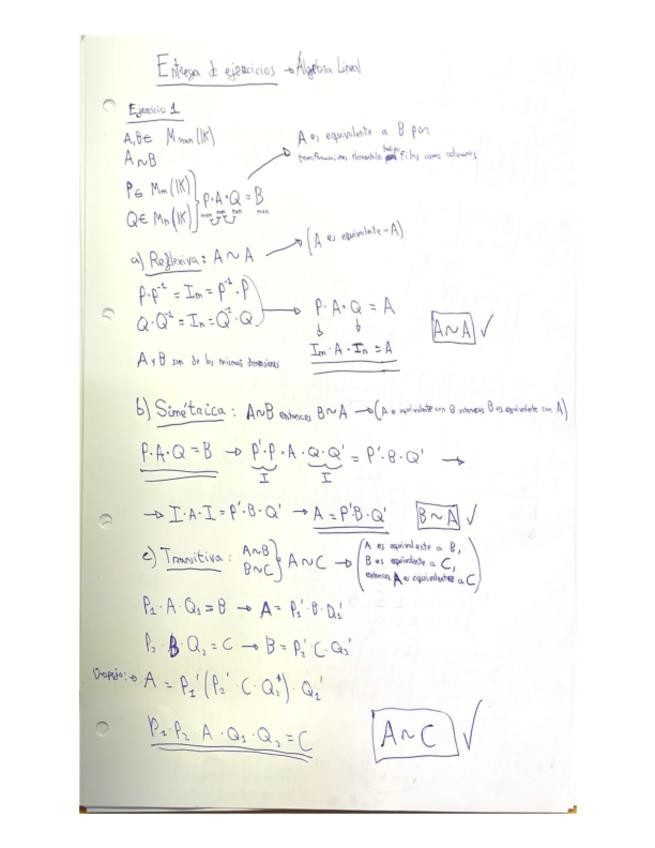 Entrega de ejercicios → Álgebra Lineal
Ejercicio 1
A,B∈ Mmxn(IK)
A∼B
A es equivalente a B por
transformaciones elementales filas como columnas
P∈ Mm(IK)
Q∈ Mn(IK)
P·A·Q = B
mxm mxn nxn mxn
a) Reflexiva: A∼A
(A es equivalente A)
P·P⁻¹ = Im = P⁻¹·P
Q·Q⁻¹ = In = Q⁻¹·Q
P·A·Q = A
Im·A·In = A
A∼A ✓
A y B son de las mismas dimensiones
b) Simétrica: A∼B entonces B∼A → (A es equivalente con B entonces B es equivalente con A)
P·A·Q = B → P'·P·A·Q·Q' = P'·B·Q' →
I I
→ I·A·I = P'·B·Q' → A = P'B·Q' B∼A ✓
c) Transitiva: A∼B
B∼C
A∼C →
(A es equivalente a B,
B es equivalente a C,
entonces A es equivalente a C)
P₁·A·Q₁ = B → A = P₁'·B·Q₁'
P₂·B·Q₂ = C → B = P₂'·C·Q₂'
A = P₁'(P₂'·C·Q₂')·Q₁'
P₁·P₂·A·Q₁·Q₂ = C
A∼C ✓